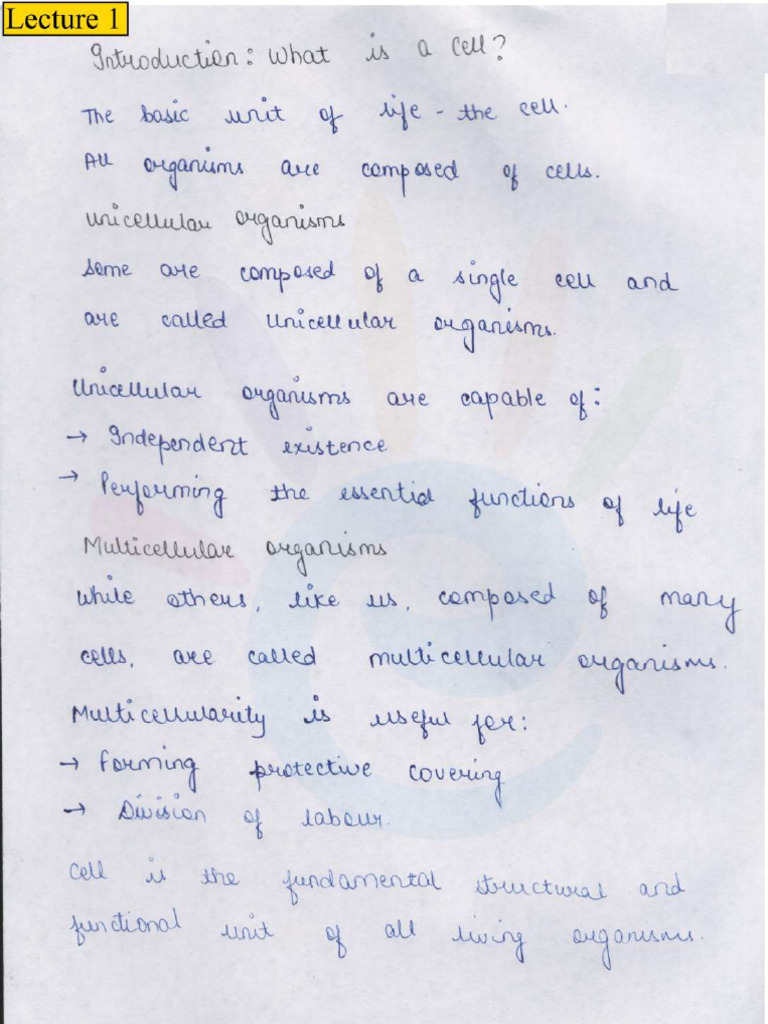 Lecture 1
Introduction: What is a cell?
The basic unit of life - the cell.
All organisms are composed of cells.
Unicellular organisms
Some are composed of a single cell and
are called unicellular organisms.
Unicellular organisms are capable of:
→ Independent existence
→ Performing the essential functions of life
Multicellular organisms
while others, like us, composed of many
cells, are called multicellular organisms.
Multicellularity is useful for:
→ Forming protective covering
→ Division of labour.
Cell is the fundamental structural and
functional unit of all living organisms.